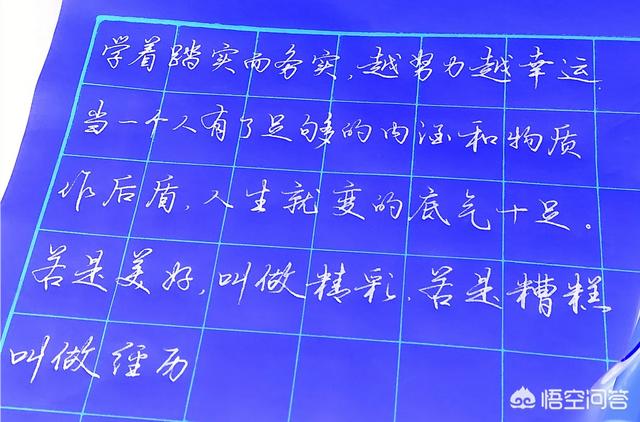 学着踏实而务实,越努力越幸运.
当一个人有了足够的内涵和物质
作后盾,人生就变的底气十足。
若是美好,叫做精彩.若是糟糕
叫做经历
悟空问答